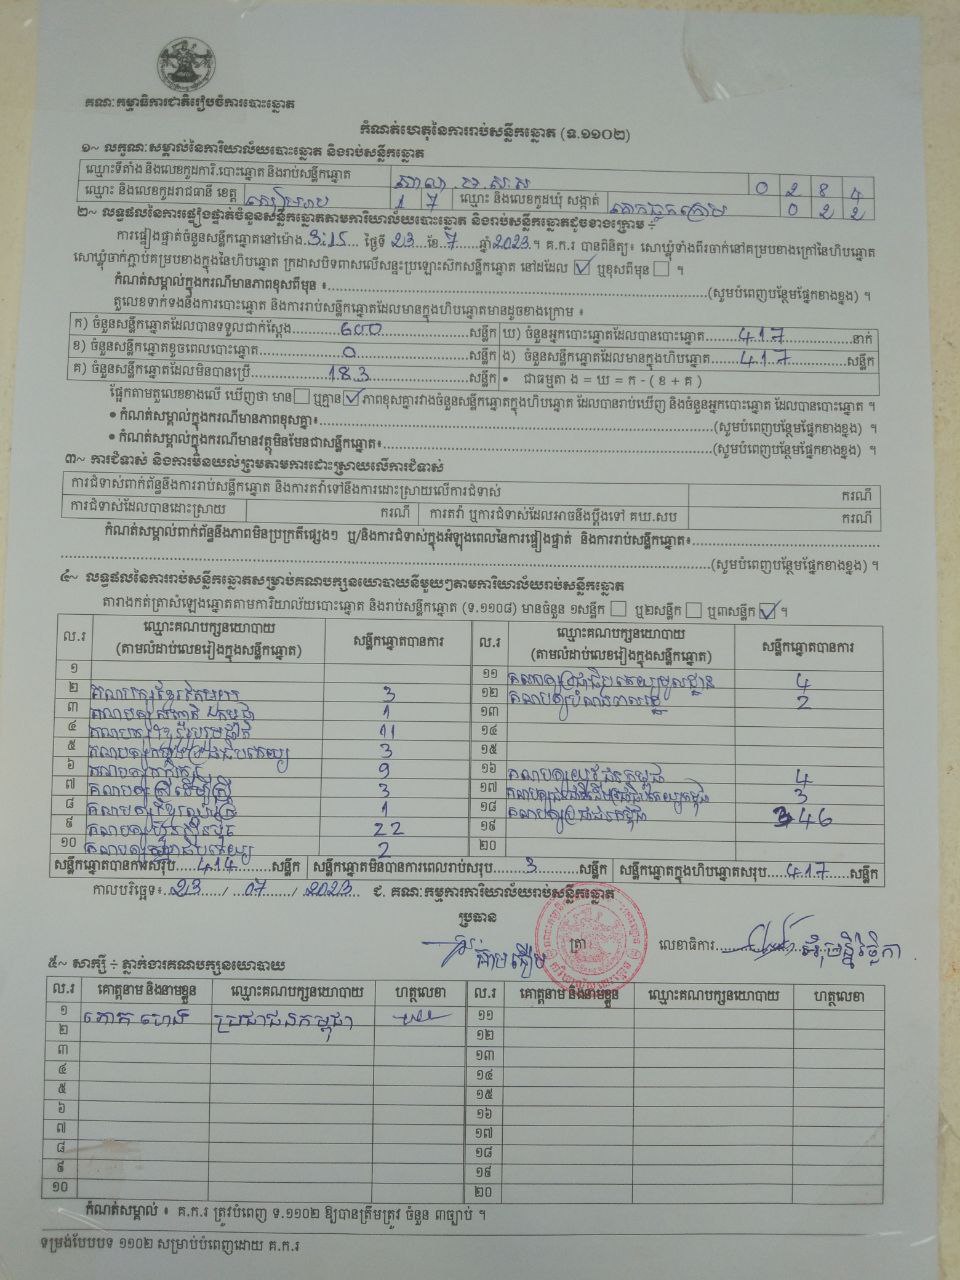 គណៈកម្មាធិការជាតិរៀបចំការបោះឆ្នោត
កំណត់ហេតុនៃការរាប់សន្លឹកឆ្នោត (ទ.១១០២)
១~ លក្ខណៈសម្គាល់នៃការិយាល័យបោះឆ្នោត និងរាប់សន្លឹកឆ្នោត
ឈ្មោះទីតាំង និងលេខកូដការិ.បោះឆ្នោត និងរាប់សន្លឹកឆ្នោត 0 2 8 4
ឈ្មោះ និងលេខកូដរាជធានី ខេត្ត សៀមរាប 1 7 ឈ្មោះ និងលេខកូដឃុំ សង្កាត់ គោកធ្លកក្រោម 0 2 2
២~ លទ្ធផលនៃការផ្ទៀងផ្ទាត់ចំនួនសន្លឹកឆ្នោតតាមការិយាល័យបោះឆ្នោត និងរាប់សន្លឹកឆ្នោតដូចខាងក្រោម ÷
ការផ្ទៀងផ្ទាត់ចំនួនសន្លឹកឆ្នោតនៅម៉ោង 3:15 ថ្ងៃទី 23 ខែ 7 ឆ្នាំ 2023 ។ គ.ក.រ បានពិនិត្យ៖ សោឃ្លុំទាំងពីរចាក់នៅគម្របខាងក្រៅនៃហិបឆ្នោត
សោឃ្លុំចាក់ភ្ជាប់គម្របខាងក្នុងនៃហិបឆ្នោត ក្រដាសបិទពាសលើសន្ទះប្រឡោះស៊កសន្លឹកឆ្នោត នៅដដែល ☑ ឬខុសពីមុន ☐ ។
កំណត់សម្គាល់ក្នុងករណីមានភាពខុសពីមុន ៖ (សូមបំពេញបន្ថែមផ្នែកខាងខ្នង) ។
តួលេខទាក់ទងនឹងការបោះឆ្នោត និងការរាប់សន្លឹកឆ្នោតដែលមានក្នុងហិបឆ្នោតមានដូចខាងក្រោម ៖
ក) ចំនួនសន្លឹកឆ្នោតដែលបានទទួលជាក់ស្តែង 600 សន្លឹក ឃ) ចំនួនអ្នកបោះឆ្នោតដែលបានបោះឆ្នោត 417 នាក់
ខ) ចំនួនសន្លឹកឆ្នោតខូចពេលបោះឆ្នោត 0 សន្លឹក ង) ចំនួនសន្លឹកឆ្នោតដែលមានក្នុងហិបឆ្នោត 417 សន្លឹក
គ) ចំនួនសន្លឹកឆ្នោតដែលមិនបានប្រើ 183 សន្លឹក • ជាធម្មតា ង = ឃ = ក - ( ខ + គ )
ផ្អែកតាមតួលេខខាងលើ ឃើញថា មាន ☐ ឬគ្មាន ☑ ភាពខុសគ្នារវាងចំនួនសន្លឹកឆ្នោតក្នុងហិបឆ្នោត ដែលបានរាប់ឃើញ និងចំនួនអ្នកបោះឆ្នោត ដែលបានបោះឆ្នោត ។
• កំណត់សម្គាល់ក្នុងករណីមានភាពខុសគ្នា៖ (សូមបំពេញបន្ថែមផ្នែកខាងខ្នង) ។
• កំណត់សម្គាល់ក្នុងករណីមានវត្ថុមិនមែនជាសន្លឹកឆ្នោត៖ (សូមបំពេញបន្ថែមផ្នែកខាងខ្នង) ។
៣~ ការជំទាស់ និងការមិនយល់ព្រមតាមការដោះស្រាយលើការជំទាស់
ការជំទាស់ពាក់ព័ន្ធនឹងការរាប់សន្លឹកឆ្នោត និងការតវ៉ាទៅនឹងការដោះស្រាយលើការជំទាស់ ករណី
ការជំទាស់ដែលបានដោះស្រាយ ករណី ការតវ៉ា ឬការជំទាស់ដែលអាចនឹងប្តឹងទៅ គឃ.សប ករណី
កំណត់សម្គាល់ពាក់ព័ន្ធនឹងភាពមិនប្រក្រតីផ្សេងៗ ឬ/និងការជំទាស់ក្នុងអំឡុងពេលនៃការផ្ទៀងផ្ទាត់ និងការរាប់សន្លឹកឆ្នោត៖
(សូមបំពេញបន្ថែមផ្នែកខាងខ្នង) ។
៤~ លទ្ធផលនៃការរាប់សន្លឹកឆ្នោតសម្រាប់គណបក្សនយោបាយនីមួយៗតាមការិយាល័យរាប់សន្លឹកឆ្នោត
តារាងកត់ត្រាសំឡេងឆ្នោតតាមការិយាល័យបោះឆ្នោត និងរាប់សន្លឹកឆ្នោត (ទ.១១០៨) មានចំនួន ១សន្លឹក ☐ ឬ២សន្លឹក ☐ ឬ៣សន្លឹក ☑ ។
ល.រ ឈ្មោះគណបក្សនយោបាយ (តាមលំដាប់លេខរៀងក្នុងសន្លឹកឆ្នោត) សន្លឹកឆ្នោតបានការ ល.រ ឈ្មោះគណបក្សនយោបាយ (តាមលំដាប់លេខរៀងក្នុងសន្លឹកឆ្នោត) សន្លឹកឆ្នោតបានការ
១ ១១ គណបក្សប្រជាធិបតេយ្យមូលដ្ឋាន 4
២ គណបក្សខ្មែរតែមួយ 3 ១២ 2
៣ 1 ១៣
៤ 11 ១៤
៥ គណបក្សកម្លាំងប្រជាធិបតេយ្យ 3 ១៥
៦ គណបក្សកសិករ 9 ១៦ គណបក្សយុវជនកម្ពុជា 4
៧ គណបក្សស្រីដើម្បីស្រី 3 ១៧ 3
៨ 1 ១៨ គណបក្សប្រជាជនកម្ពុជា 346
៩ គណបក្សហ្វ៊ុនស៊ិនប៉ិច 22 ១៩
១០ 2 ២០
សន្លឹកឆ្នោតបានការសរុប 414 សន្លឹក សន្លឹកឆ្នោតមិនបានការពេលរាប់សរុប 3 សន្លឹក សន្លឹកឆ្នោតក្នុងហិបឆ្នោតសរុប 417 សន្លឹក
កាលបរិច្ឆេទ៖ 23 / 07 / 2023 ជ. គណៈកម្មការការិយាល័យរាប់សន្លឹកឆ្នោត
ប្រធាន
ត្រា លេខាធិការ
៥~ សាក្សី ÷ ភ្នាក់ងារគណបក្សនយោបាយ
ល.រ គោត្តនាម និងនាមខ្លួន ឈ្មោះគណបក្សនយោបាយ ហត្ថលេខា ល.រ គោត្តនាម និងនាមខ្លួន ឈ្មោះគណបក្សនយោបាយ ហត្ថលេខា
១ ភោគ ហេង ប្រជាជនកម្ពុជា ១១
២ ១២
៣ ១៣
៤ ១៤
៥ ១៥
៦ ១៦
៧ ១៧
៨ ១៨
៩ ១៩
១០ ២០
កំណត់សម្គាល់ ៖ គ.ក.រ ត្រូវបំពេញ ទ.១១០២ ឱ្យបានត្រឹមត្រូវ ចំនួន ៣ច្បាប់ ។
ទម្រង់បែបបទ ១១០២ សម្រាប់បំពេញដោយ គ.ក.រ